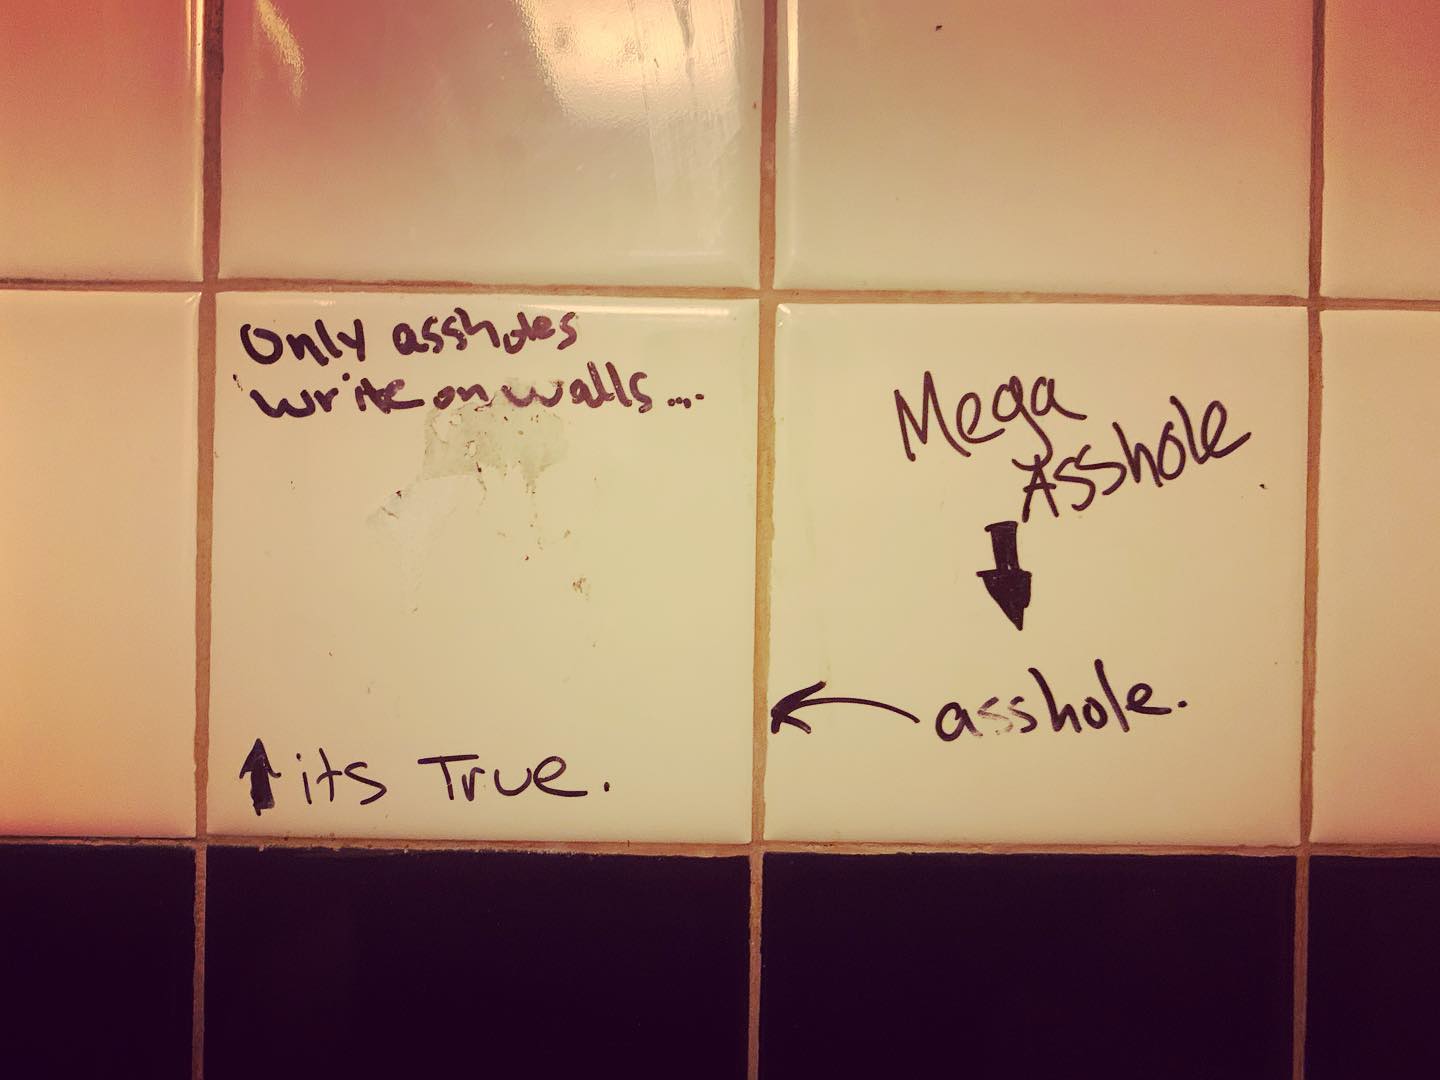 Only assholes
write on walls....
↑ its True.
Mega
Asshole
↓
← asshole.